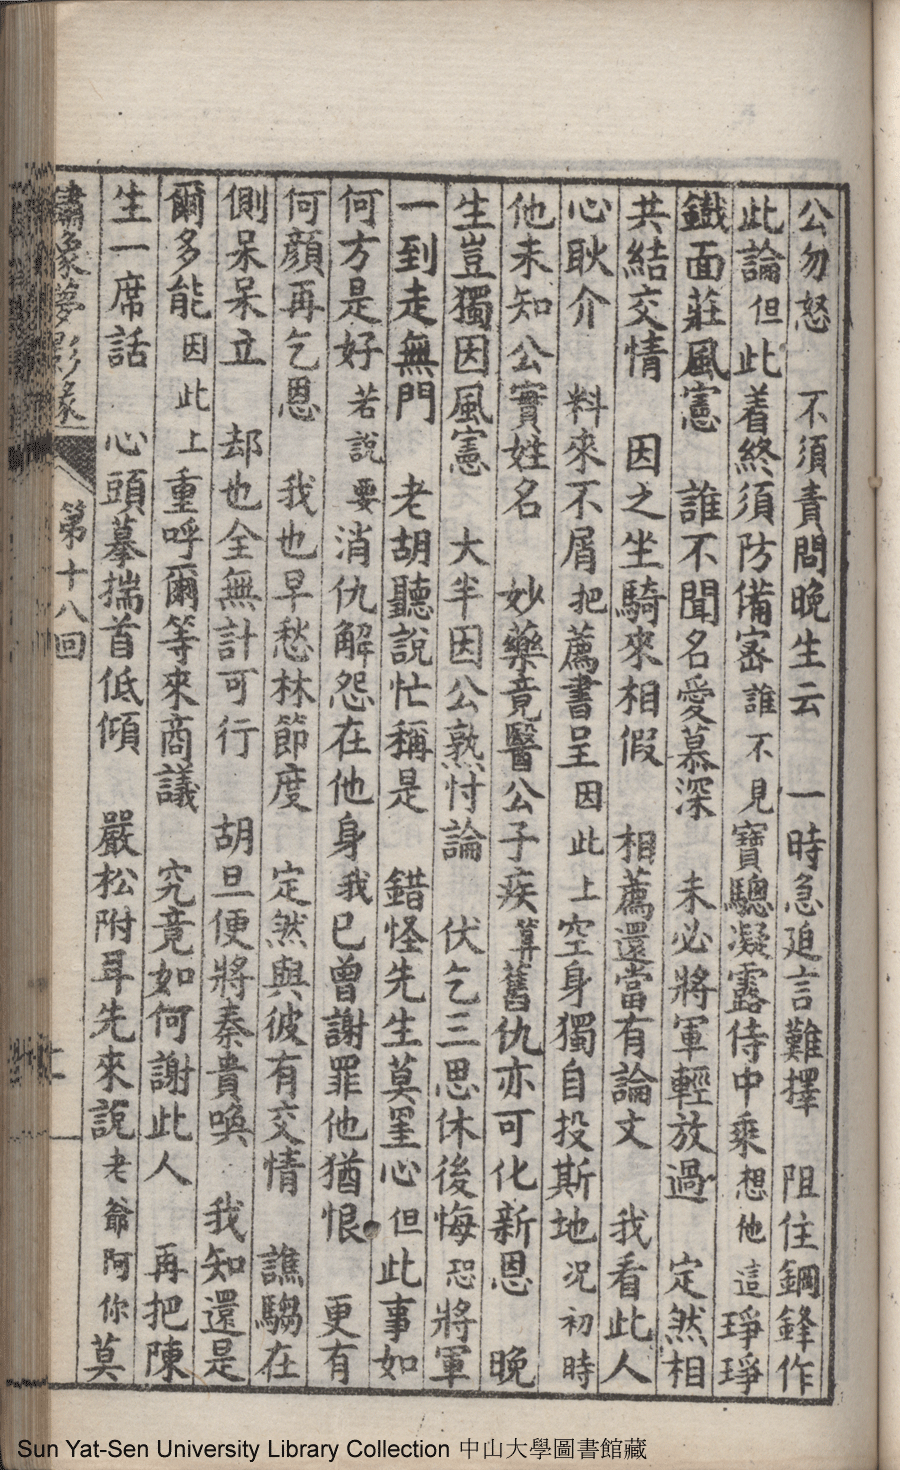 公勿怒　不須責問晚生云　一時急迫言難擇　阻住鋼鋒作
此論但此着終須防備密誰不見寶驄凝露侍中乘想他這琤琤
鐵面莊風憲　誰不聞名愛慕深　未必將軍輕放過　定然相
共結交情　因之坐騎來相假　相薦還當有論文　我看此人
心耿介　料來不屑把薦書呈因此上空身獨自投斯地况初時
他未知公實姓名　妙藥竟醫公子疾算舊仇亦可化新恩　晚
生豈獨因風憲　大半因公熟忖論　伏乞三思休後悔恐將軍
一到走無門　老胡聽說忙稱是　錯怪先生莫罣心但此事如
何方是好若說要消仇解怨在他身我已曾謝罪他猶恨　更有
何顏再乞恩　我也早愁林節度　定然與彼有交情　譙騶在
側呆呆立　却也全無計可行　胡旦便將秦貴喚　我知還是
爾多能因此上重呼爾等來商議　究竟如何謝此人　再把陳
生一席話　心頭摹揣首低傾　嚴松附耳先來說老爺阿你莫
繡像夢影緣　第十八回
Sun Yat-Sen University Library Collection 中山大學圖書館藏